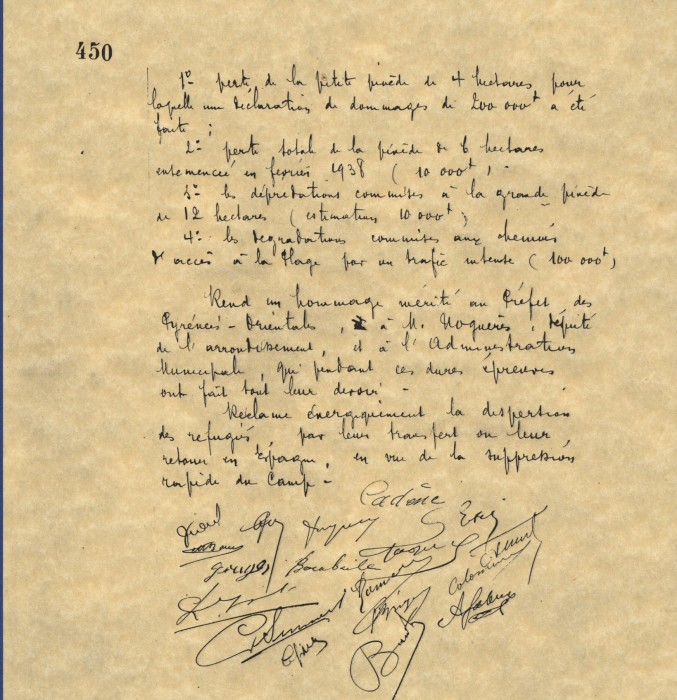 450
1º perte de la petite pinède de 4 hectares pour
laquelle une déclaration de dommages de 200 000f a été
faite ;
2º perte total de la pinède de 6 hectares
ensemencée en février 1938 ( 10 000f ) -
3º les dépredations commises à la grande pinède
de 12 hectares ( estimation 10 000f ;
4º les degradations commises aux chemins
d'accès à la Plage par un trafic intense ( 100 000f )
Rend un hommage mérité au Préfet des
Pyrénées-Orientales, à M. Noguères, député
de l'arrondissement, et à l'Administration
Municipale, qui pendant ces dures épreuves
ont fait tout leur devoir -
Réclame énergiquement la dispersion
des refugiés par leur transfert ou leur
retour en Espagne, en vue de la suppression
rapide du Camp -
Cadène